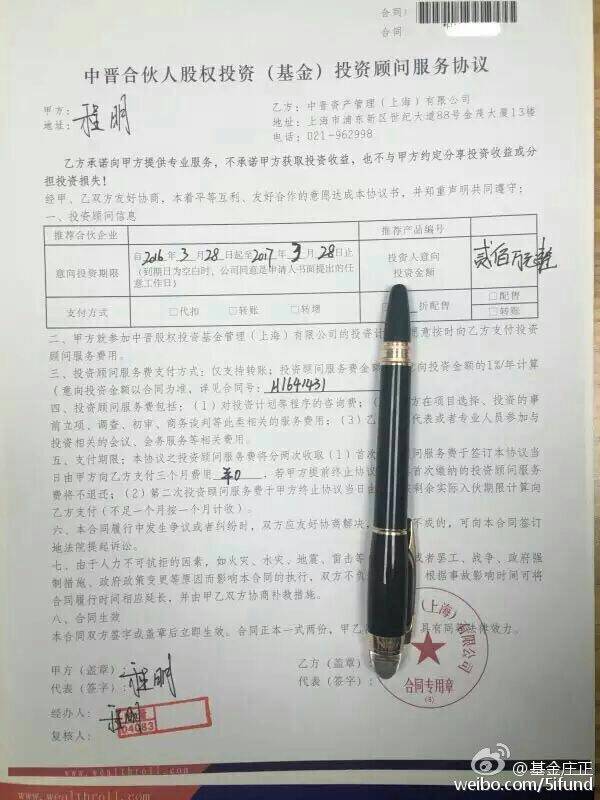 合同：
合同
中晋合伙人股权投资（基金）投资顾问服务协议
甲方：程明
地址：
乙方：中晋资产管理（上海）有限公司
地址：上海市浦东新区世纪大道88号金茂大厦13楼
电话：021-962998
乙方承诺向甲方提供专业服务，不承诺甲方获取投资收益，也不与甲方约定分享投资收益或分
担投资损失！
经甲、乙双方友好协商，本着平等互利、友好合作的意愿达成本协议书，并郑重声明共同遵守：
一、投资顾问信息
推荐合伙企业 推荐产品编号
意向投资期限 自2016年3月28日起至2017年3月28日止
（到期日为空白时，公司同意是申请人书面提出的任
意工作日）
投资人意向
投资金额
贰佰万元整
支付方式 □代扣 □转账 □转增 折配售 □配售
□转账
二、甲方就参加中晋股权投资基金管理（上海）有限公司的投资计 愿意按时向乙方支付投资
顾问服务费用。
三、投资顾问服务费支付方式：仅支持转账；投资顾问服务费金额 意向投资金额的1%/年计算
（意向投资金额以合同为准，详见合同号：H1641431
四、投资顾问服务费包括：（1）对投资计划等程序的咨询费；（ 方在项目选择、投资的事
前立项、调查、初审、商务谈判等此类相关的服务费用；（3）乙 代表或者专业人员参加与
投资相关的会议、会务服务等相关费用。
五、支付期限：本协议之投资顾问服务费将分两次收取（1）首次 顾问服务费于签订本协议当
日由甲方向乙方支付三个月费用 ¥0 ，若甲方提前终止协议 首次缴纳的投资顾问服务
费将不退还；（2）第二次投资顾问服务费于甲方终止协议当日由 剩余实际入伙期限计算向
乙方支付（不足一个月按一个月计收）。
六、本合同履行中发生争议或者纠纷时，双方应友好协商解决， 不成的，可向本合同签订
地法院提起诉讼。
七、由于人力不可抗拒的因素，如火灾、水灾、地震、雷击等 或者罢工、战争、政府强
制措施、政府政策变更等原因而影响本合同的执行，双方不负 根据事故影响时间可将
合同履行时间相应延长，并由甲乙双方协商补救措施。
八、合同生效
本合同双方签字或盖章后立即生效。合同正本一式两份，甲乙 具有同等法律效力。
甲方（盖章）：
代表（签字）：程明
乙方（盖章
代表（签字
（上海）有限公司
合同专用章
经办人：程明
04083
复核人：
www.wealthroll.com
www.wealthroll.com
@基金庄正
weibo.com/5ifund